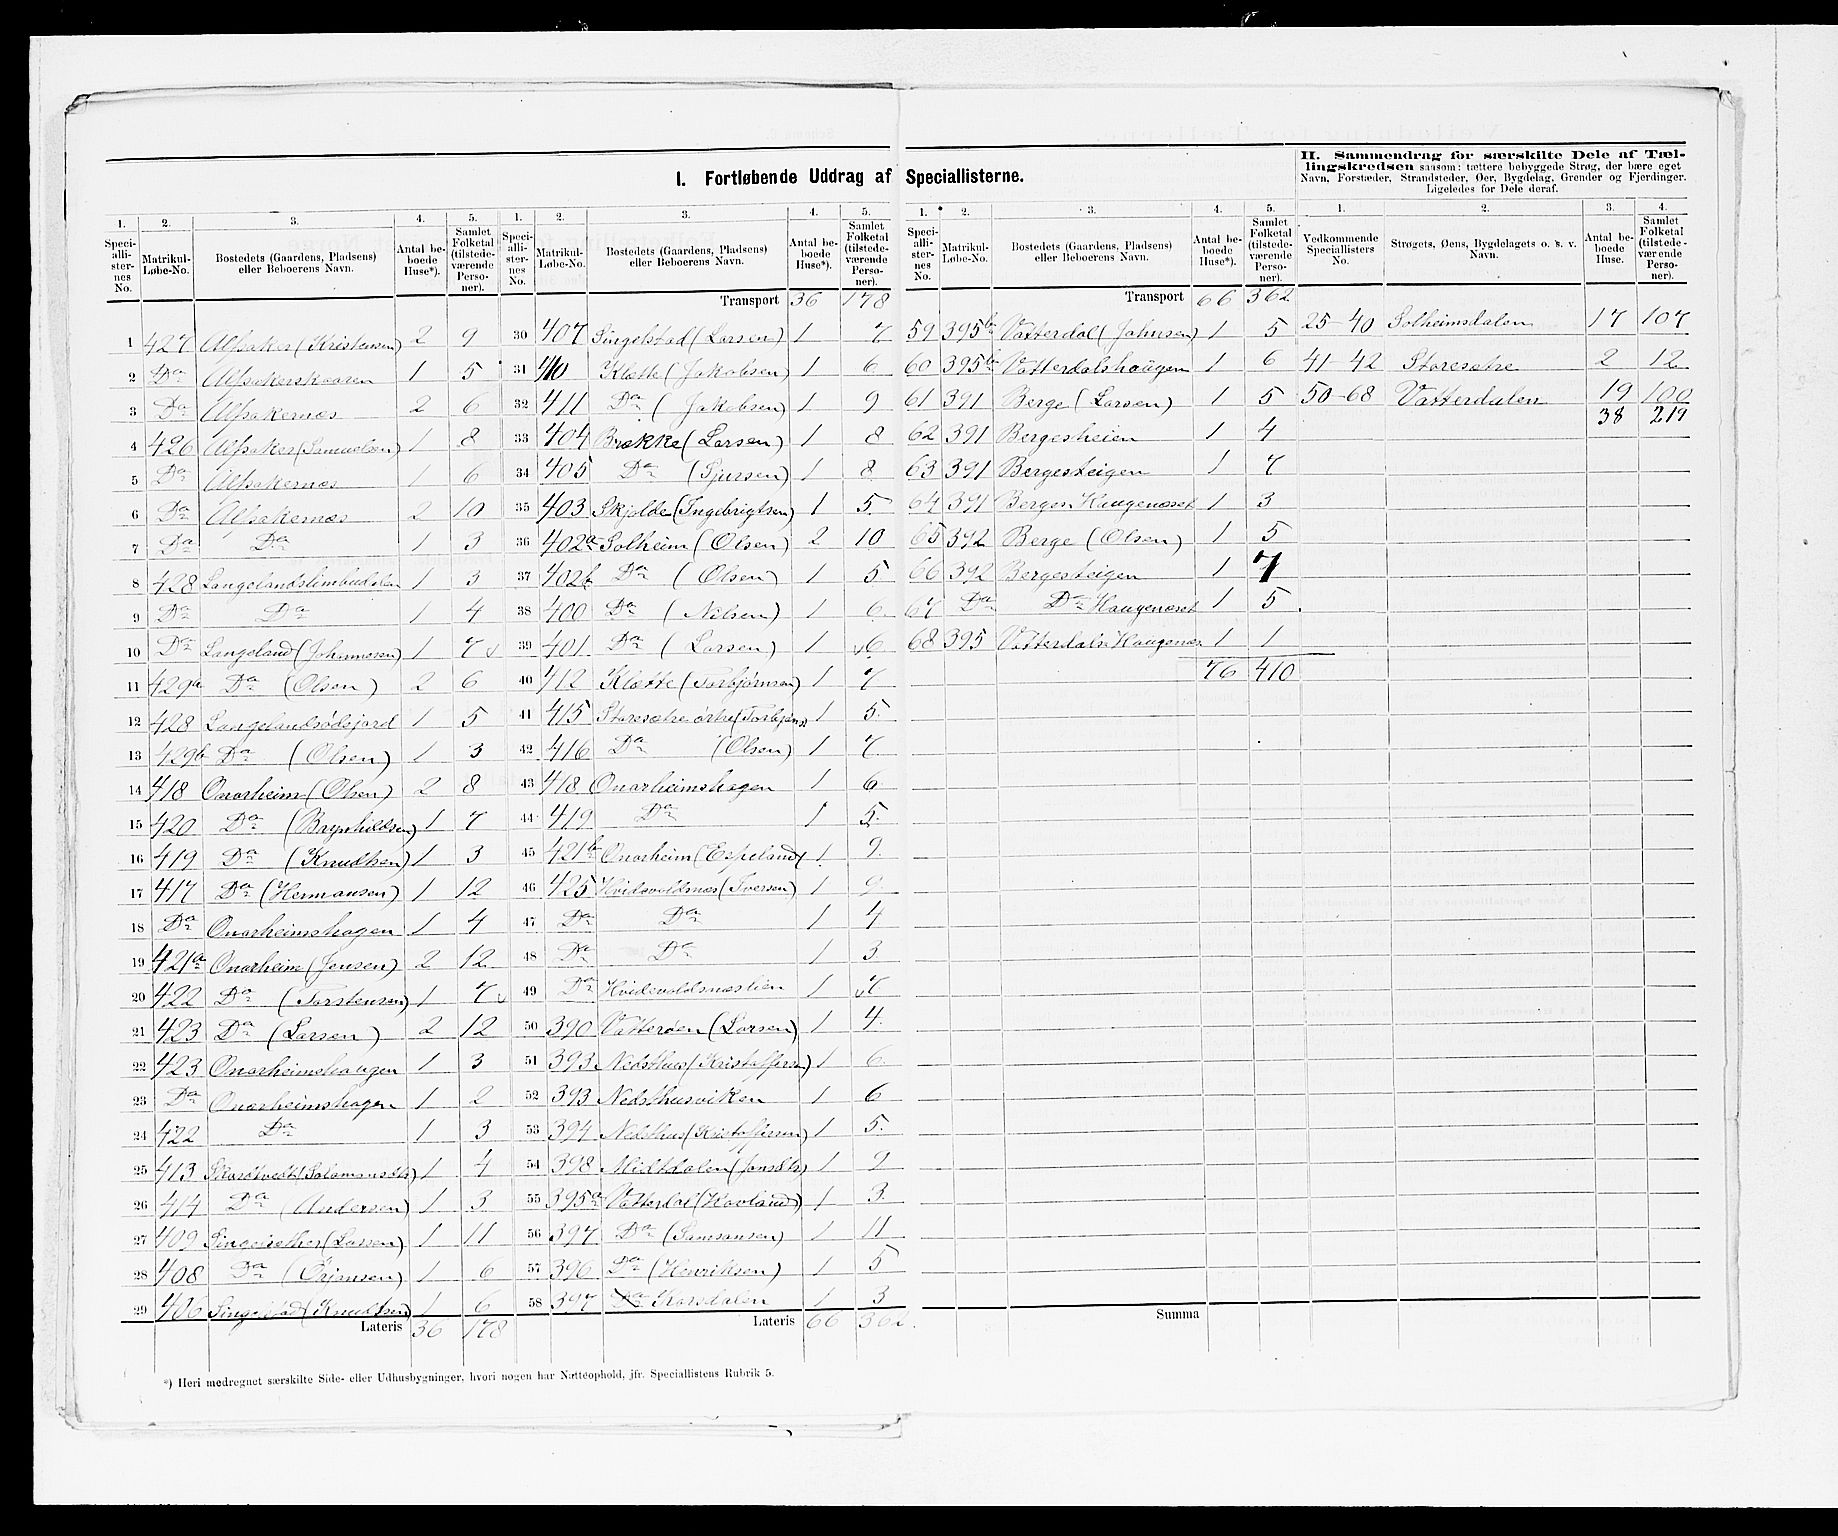 I. Fortløbende Uddrag af Speciallisterne.
II. Sammendrag for særskilte Dele af Tæl-
lingskredsen saasom: tættere bebyggede Strøg, der bære eget
Navn, Forstæder, Strandsteder, Øer, Bygdelag, Grender og Fjerdinger.
Ligeledes for Dele deraf.
1. Speci-alli-ster-nes No. 2. Matrikul-Løbe-No. 3. Bostedets (Gaardens, Pladsens) eller Beboerens Navn. 4. Antal be-boede Huse*). 5. Samlet Folketal (tilstede-værende Perso-ner).
1 427 Alsaker (Kristensen) 2 9
2 Do Alsakerskaaren 1 5
3 Do Alsakernæs 2 6
4 426 Alsaker (Samuelsen) 1 8
5 Do Alsakernæs 1 6
6 Do Alsakernæs 2 10
7 Do Do 1 3
8 428 Langelandslimbudalen 1 3
9 Do Do 1 4
10 Do Langeland (Johannesen) 1 7
11 429a Do (Olsen) 2 6
12 428 Langelandsødejord 1 5
13 429b Do (Olsen) 1 3
14 418 Onarheim (Olsen) 2 8
15 420 Do (Brynhildsen) 1 7
16 419 Do (Knudtsen) 1 3
17 417 Do (Hermansen) 1 12
18 Do Onarheimshagen 1 4
19 421a Onarheim (Jensen) 2 12
20 422 Do (Torstensen) 1 7
21 423 Do (Larsen) 2 12
22 423 Onarheimshaugen 1 3
23 Do Onarheimshagen 1 2
24 422 Do 1 3
25 413 Skardtvedt (Salamonsdtr) 1 4
26 414 Do (Andersen) 1 3
27 409 (Larsen) 1 11
28 408 Do (Grimsen) 1 6
29 406 (Knudtsen) 1 6
Lateris 36 178
1. Speci-alli-ster-nes No. 2. Matrikul-Løbe-No. 3. Bostedets (Gaardens, Pladsens) eller Beboerens Navn. 4. Antal be-boede Huse*). 5. Samlet Folketal (tilstede-værende Perso-ner).
Transport 36 178
30 407 Singelstad (Larsen) 1 7
31 410 Klætte (Jakobsen) 1 6
32 411 Do (Jakobsen) 1 9
33 404 Brække (Larsen) 1 8
34 405 Do (Sjursen) 1 8
35 403 Skjolde (Ingebrigtsen) 1 5
36 402a Solheim (Olsen) 2 10
37 402b Do (Olsen) 1 5
38 400 Do (Nilsen) 1 6
39 401 Do (Larsen) 1 6
40 412 Klætte (Torbjørnsen) 1 7
41 415 Storesætre 1 5
42 416 Do (Olsen) 1 7
43 418 Onarheimshagen 1 6
44 419 Do 1 5
45 421b Onarheim (Espeland) 1 9
46 425 Hvidevoldsnæs (Iversen) 1 9
47 Do Do 1 4
48 Do Do 1 3
49 Do Hvidevoldsnæslien 1 7
50 390 Vatterøen (Larsen) 1 4
51 393 Nedsthus (Kristoffersen) 1 6
52 393 Nedsthusviken 1 6
53 394 Nedsthus (Kristoffersen) 1 5
54 398 Midtdalen (Jonsdtr) 1 9
55 395a Vatterdal (Havland) 1 3
56 397 Do (Samsonsen) 1 11
57 396 Do (Henriksen) 1 5
58 397 Do Korsdalen 1 3
Lateris 66 362
1. Speci-alli-ster-nes No. 2. Matrikul-Løbe-No. 3. Bostedets (Gaardens, Pladsens) eller Beboerens Navn. 4. Antal be-boede Huse*). 5. Samlet Folketal (tilstede-værende Perso-ner).
Transport 66 362
59 395b Vatterdal (Johnsen) 1 5
60 395b Vatterdalshaugen 1 6
61 391 Berge (Larsen) 1 5
62 391 Bergesheien 1 4
63 391 Bergesteigen 1 7
64 391 Berges Haugenæset 1 3
65 392 Berge (Olsen) 1 5
66 392 Bergesteigen 1 7
67 Do Do Haugenæset 1 5
68 395 Vatterdals Haugenæs 1 1
76 410
Summa
1. Vedkommende Speciallisters No. 2. Strøgets, Øens, Bygdelagets o. s. v. Navn. 3. Antal be-boede Huse. 4. Samlet Folketal (tilstede-værende Perso-ner).
25-40 Solheimsdalen 17 107
41-42 Storesætre 2 12
50-68 Vatterdalen 19 100
38 219
*) Heri medregnet særskilte Side- eller Udhusbygninger, hvori nogen har Natteophold, jfr. Speciallistens Rubrik 5.